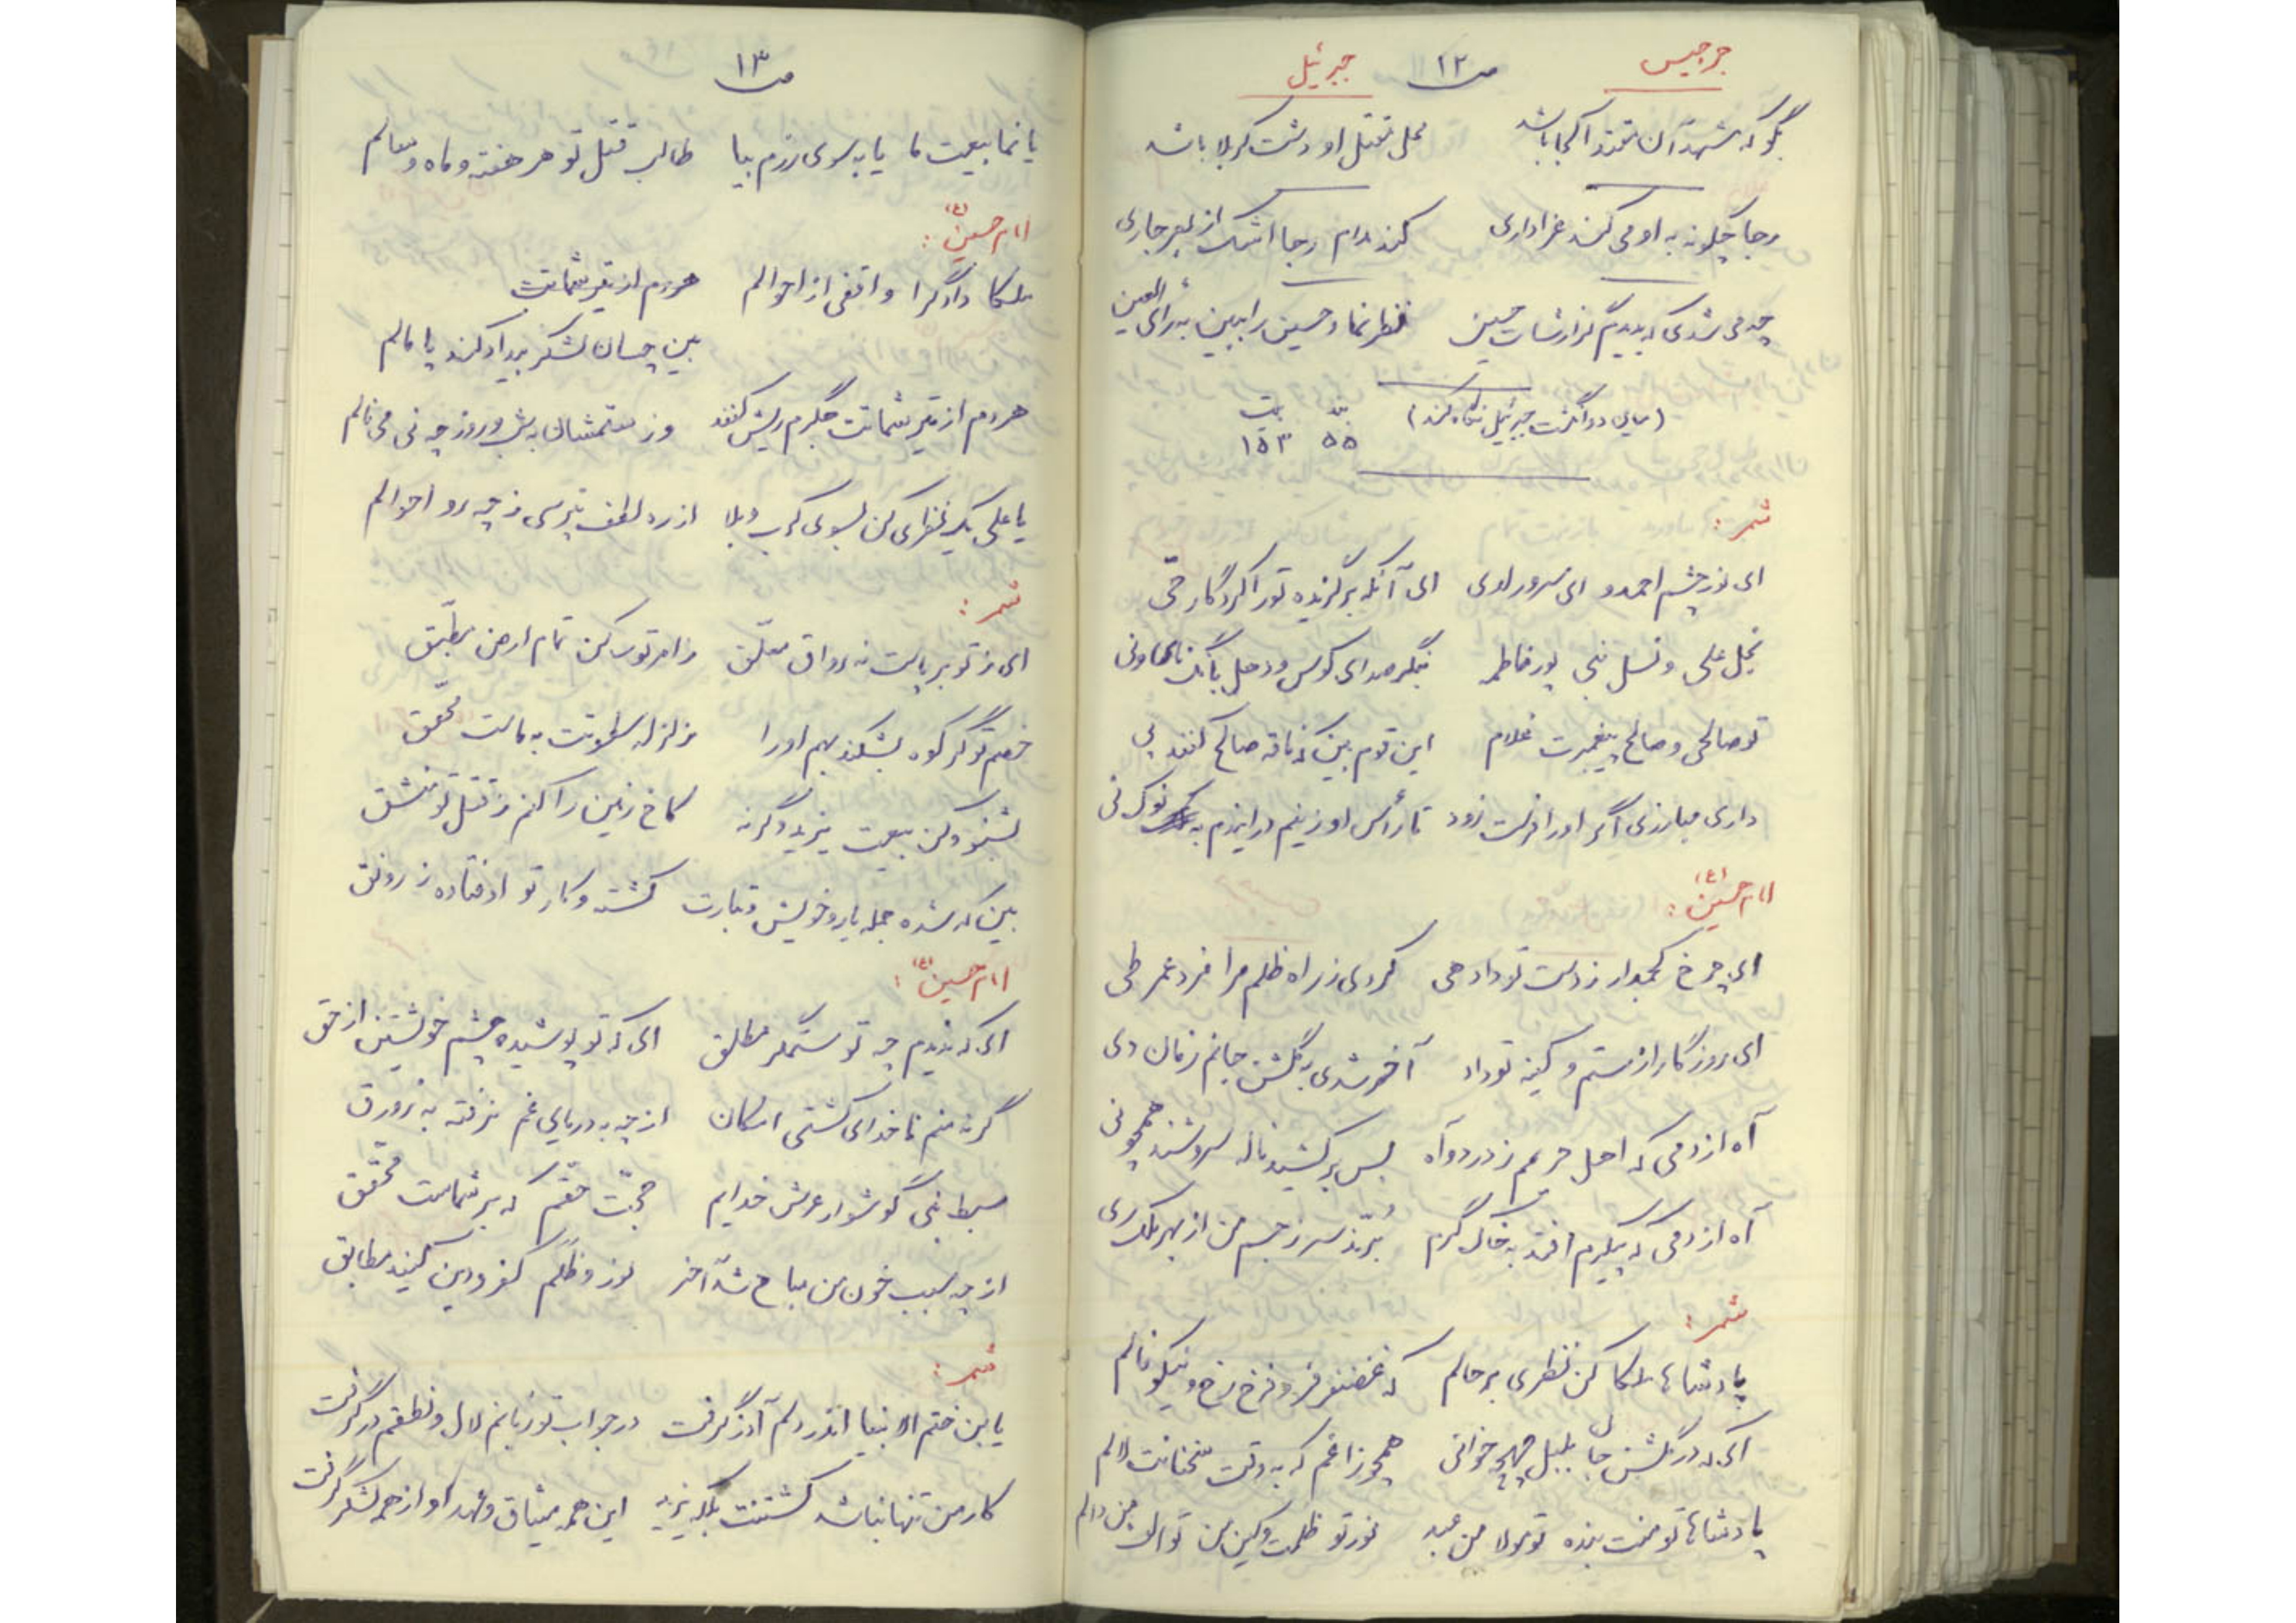 جرجیس ص۱۲ جبرئیل
بگو که مشهد آن مقتدا کجا باشد محل مقتل او دشت کربلا باشد
رجا چگونه به او می کنند عزاداری کنند مدام رجا اشک از بصر جاری
چه می شدی که بدیدم گزارشات حسین نظر نما و حسین را ببین به رأی العین
(میان دو انگشت جبرئیل نگاه کند) بند ۵۵ بیت ۱۵۳
شمر:
ای نور چشم احمد و ای سرور لوی ای آنکه برگزیده تو را کردگار حی
نجل علی و نسل نبی پور فاطمه بنگر صدای کوس و دهل بانگ نای و نی
تو صالحی و صالح پیغمبرت غلام این قوم بین که ناقه صالح کنند پی
داری مبارزی اگر او را فرست زود تا رأس او زنیم در ایندم به نوک نی
امام حسین (ع):
ای چرخ کجمدار ز دست تو داد هی کردی ز راه ظلم مرا فرد عمر طی
ای روزگار از ستم و کینه تو داد آخر شدی به گلشن جانم زمان دی
آه از دمی که اهل حرمم ز درد و آه بس برکشید ناله سروشند همچو نی
آه از دمی که پیکرم افتد به خاک گرم بُرّند سر ز جسم من از بهر ملک ری
شمر:
پادشاها ملکا کن نظری بر حالم که غضنفر فر و فرخ رخ و نیکو فالم
ای که در گلشن جان بلبل چهچه خوانی همچو زاغم که به وقت سخنانت لالم
پادشاها تو منت بنده تو مولا من عبد نور تو ظلمت و کین من تو الف من دالم
ص۱۳
یا نما بیعت ما یا به سوی رزم بیا طالب قتل تو هر هفته و ماه و سالم
امام حسین (ع):
ملکا دادگرا واقفی از احوالم هردم از تیر شماتت
بین چسان لشکر بیداد کند پامالم
هردم از تیر شماتت جگرم ریش کنند وز ستمشان به شب و روز چه نی می نالم
یا علی یک نظری کن بسوی کرب و بلا از ره لطف بپرسی ز چه رو احوالم
شمر:
ای ز تو برپاست نه رواق معلّق ز امر تو ساکن تمام ارض مطبّق
خصم تو گر کوه بشکند بهم او را زلزله سطوتت به ماست محقّق
بشنو و کن بیعت یزید وگرنه کاخ زمین را کنم ز قتل تو منشق
بین که شده جمله یار و خویش و تبارت کشته و کار تو اوفتاده ز رونق
امام حسین (ع):
ای که ندیدم چه تو ستمگر مطلق ای که تو پوشیده چشم خویشتن از حق
گرنه منم ناخدای کشتی امکان از چه به دریای غم نرفته به زورق
سبط نبی گوشوار عرش خدایم حجّت حقّم که بر شماست محقّق
از چه سبب خون من مباح شد آخر نور و ظلَم کفر و دین کنید مطابق
شمر:
یابن ختم الانبیا اندر دلم آذر گرفت در جواب تو زبانم لال و نطقم در گرفت
کار من تنها نباشد کشتنت بلکه یزید این همه میثاق و عهد او از همه لشکر گرفت